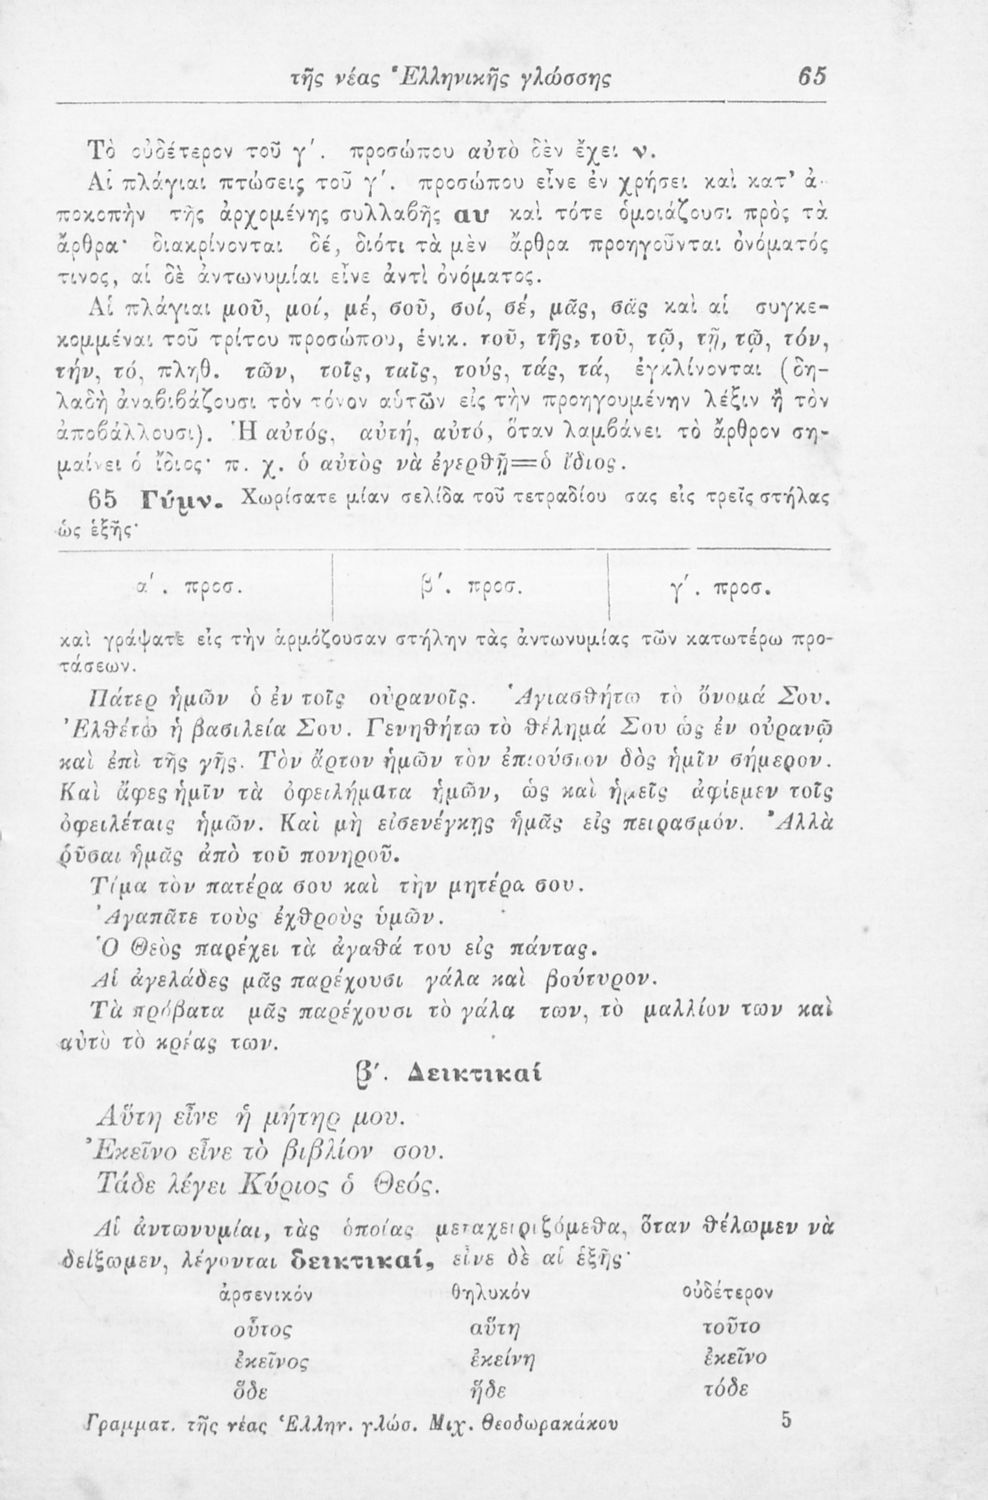 τῆς νέας Ἑλληνικῆς γλώσσης 65
Τὸ οὐδέτερον τοῦ γ΄. προσώπου αὐτὸ δὲν ἔχει ν.
Αἱ πλάγιαι πτώσεις τοῦ γ΄. προσώπου εἶνε ἐν χρήσει καὶ κατ’ ἀ-
ποκοπὴν τῆς ἀρχομένης συλλαβῆς αυ καὶ τότε ὁμοιάζουσι πρὸς τὰ
ἄρθρα· διακρίνονται δέ, διότι τὰ μὲν ἄρθρα προηγοῦνται ὀνόματός
τινος, αἱ δὲ ἀντωνυμίαι εἶνε ἀντὶ ὀνόματος.
Αἱ πλάγιαι μοῦ, μοί, μέ, σοῦ, σοί, σέ, μᾶς, σᾶς καὶ αἱ συγκε-
κομμέναι τοῦ τρίτου προσώπου, ἑνικ. τοῦ, τῆς, τοῦ, τῷ, τῇ, τῷ, τόν,
τήν, τό, πληθ. τῶν, τοῖς, ταῖς, τούς, τάς, τά, ἐγκλίνονται (δη-
λαδὴ ἀναβιβάζουσι τὸν τόνον αὑτῶν εἰς τὴν προηγουμένην λέξιν ἢ τὸν
ἀποβάλλουσι). Ἡ αὐτός, αὐτή, αὐτό, ὅταν λαμβάνει τὸ ἄρθρον ση-
μαίνει ὁ ἴδιος· π. χ. ὁ αὐτὸς νὰ ἐγερθῇ=ὁ ἴδιος.
65 Γύμν. Χωρίσατε μίαν σελίδα τοῦ τετραδίου σας εἰς τρεῖς στήλας
ὡς ἑξῆς·
α΄. προσ. β΄. προσ. γ΄. προσ.
καὶ γράψατε εἰς τὴν ἁρμόζουσαν στήλην τὰς ἀντωνυμίας τῶν κατωτέρω προ-
τάσεων.
Πάτερ ἡμῶν ὁ ἐν τοῖς οὐρανοῖς. Ἁγιασθήτω τὸ ὄνομά Σου.
Ἐλθέτω ἡ βασιλεία Σου. Γενηθήτω τὸ θέλημά Σου ὡς ἐν οὐρανῷ
καὶ ἐπὶ τῆς γῆς. Τὸν ἄρτον ἡμῶν τὸν ἐπιούσιον δὸς ἡμῖν σήμερον.
Καὶ ἄφες ἡμῖν τὰ ὀφειλήματα ἡμῶν, ὡς καὶ ἡμεῖς ἀφίεμεν τοῖς
ὀφειλέταις ἡμῶν. Καὶ μὴ εἰσενέγκῃς ἡμᾶς εἰς πειρασμόν. Ἀλλὰ
ῥῦσαι ἡμᾶς ἀπὸ τοῦ πονηροῦ.
Τίμα τὸν πατέρα σου καὶ τὴν μητέρα σου.
Ἀγαπᾶτε τοὺς ἐχθροὺς ὑμῶν.
Ὁ Θεὸς παρέχει τὰ ἀγαθά του εἰς πάντας.
Αἱ ἀγελάδες μᾶς παρέχουσι γάλα καὶ βούτυρον.
Τὰ πρόβατα μᾶς παρέχουσι τὸ γάλα των, τὸ μαλλίον των καὶ
αὐτὸ τὸ κρέας των.
β΄. Δεικτικαί
Αὕτη εἶνε ἡ μήτηρ μου.
Ἐκεῖνο εἶνε τὸ βιβλίον σου.
Τάδε λέγει Κύριος ὁ Θεός.
Αἱ ἀντωνυμίαι, τὰς ὁποίας μεταχειριζόμεθα, ὅταν θέλωμεν νὰ
δείξωμεν, λέγονται δεικτικαί, εἶνε δὲ αἱ ἑξῆς·
ἀρσενικόν θηλυκόν οὐδέτερον
οὗτος αὕτη τοῦτο
ἐκεῖνος ἐκείνη ἐκεῖνο
ὅδε ἥδε τόδε
Γραμματ. τῆς νέας Ἑλλην. γλώσ. Μιχ. Θεοδωρακάκου 5